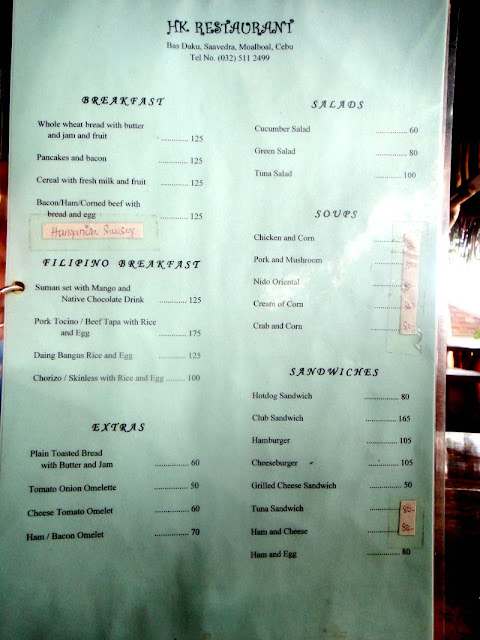 HK RESTAURANT
Bas Daku, Saavedra, Moalboal, Cebu
Tel No. (032) 511 2499
BREAKFAST
Whole wheat bread with butter
and jam and fruit ............. 125
Pancakes and bacon ............. 125
Cereal with fresh milk and fruit ............. 125
Bacon/Ham/Corned beef with
bread and egg ............. 125
Hungarian Sausage
FILIPINO BREAKFAST
Suman set with Mango and
Native Chocolate Drink ............ 125
Pork Tocino / Beef Tapa with Rice
and Egg ............ 175
Daing Bangus Rice and Egg ............ 125
Chorizo / Skinless with Rice and Egg ........ 100
EXTRAS
Plain Toasted Bread
with Butter and Jam .............. 60
Tomato Onion Omelette .............. 50
Cheese Tomato Omelet .............. 60
Ham / Bacon Omelet .............. 70
SALADS
Cucumber Salad ............. 60
Green Salad ............. 80
Tuna Salad ............. 100
SOUPS
Chicken and Corn
Pork and Mushroom
Nido Oriental
Cream of Corn
Crab and Corn
SANDWICHES
Hotdog Sandwich .............. 80
Club Sandwich .............. 165
Hamburger .............. 105
Cheeseburger .............. 105
Grilled Cheese Sandwich .............. 50
Tuna Sandwich .............. 80-
Ham and Cheese .............. 80-
Ham and Egg .............. 80